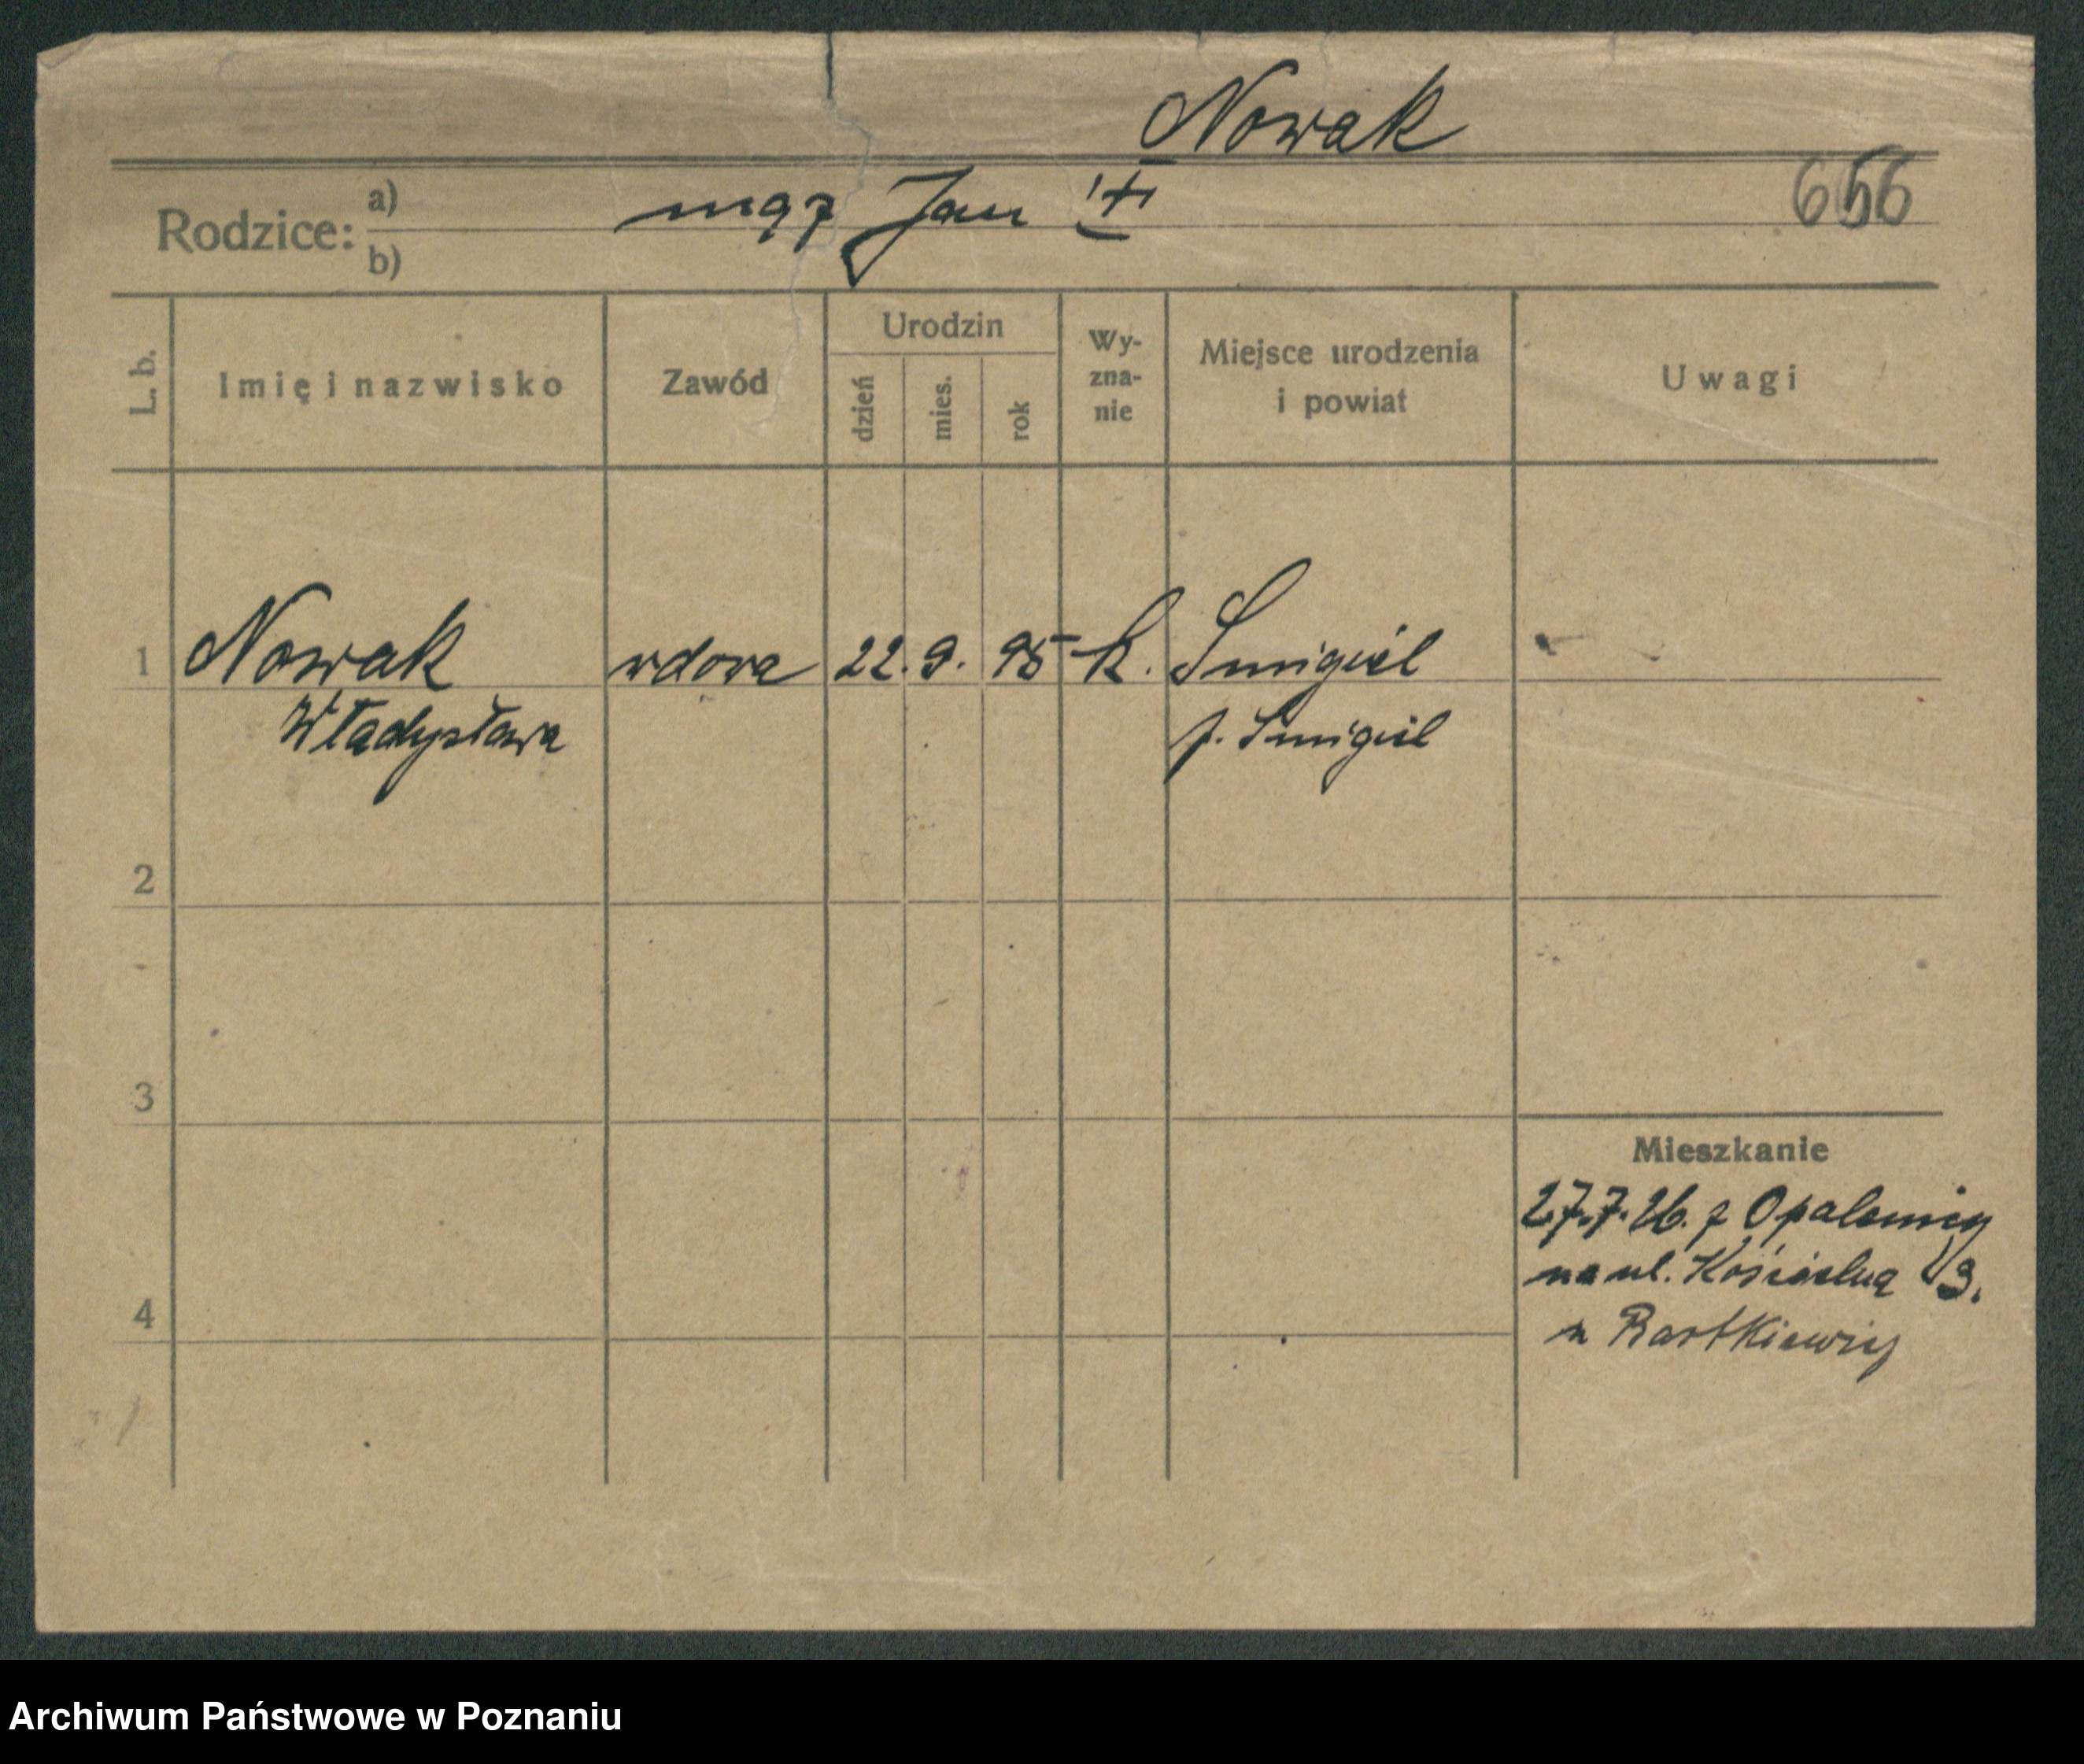 Nowak
Rodzice: a) mąż Jan
b)
656
L. b.
Imię i nazwisko
Zawód
Urodzin
dzień
mies.
rok
Wy-
zna-
nie
Miejsce urodzenia
i powiat
Uwagi
1 Nowak wdowa 22. 9. 95 k. Śmigiel
Władysława p. Śmigiel
2
3
Mieszkanie
27.7.26. z Opalenicy
na ul. Kościelną
4
u Bartkiewicz
Archiwum Państwowe w Poznaniu